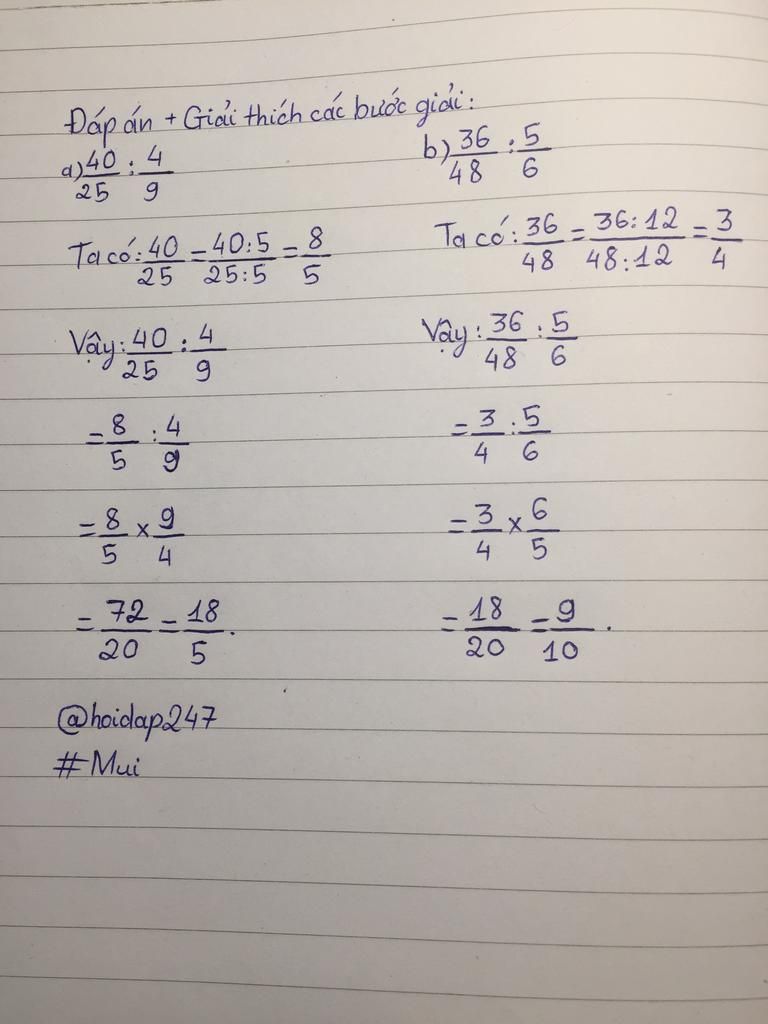 Đáp án + Giải thích các bước giải:
a) 40/25 : 4/9
Ta có: 40/25 = 40:5/25:5 = 8/5
Vậy: 40/25 : 4/9
= 8/5 : 4/9
= 8/5 × 9/4
= 72/20 = 18/5.
b) 36/48 : 5/6
Ta có: 36/48 = 36:12/48:12 = 3/4
Vậy: 36/48 : 5/6
= 3/4 : 5/6
= 3/4 × 6/5
= 18/20 = 9/10.
@hoidap247
#Mui